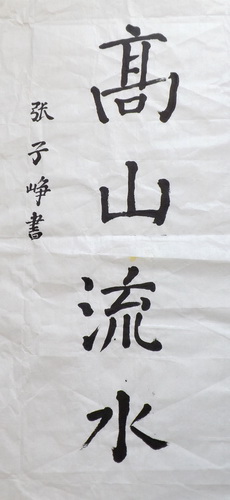 髙山流水
张子峥書